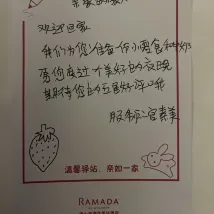 欢迎回家
我们为您准备了小零食和牛奶
愿你度过一个美好的夜晚
期待您的五星好评哦
服务员：宫素美
温馨驿站，亲如一家
RAMADA